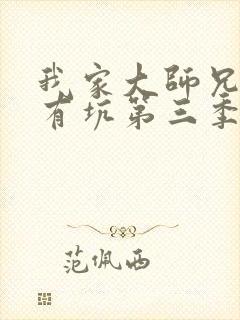 我家大师兄
有坑第三季
范佩西